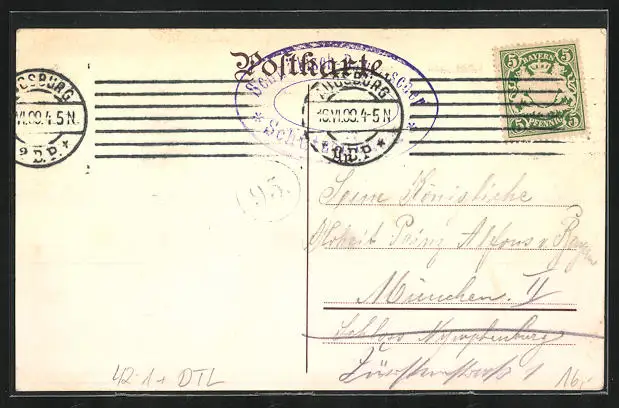 Postkarte
AUGSBURG
VI.09.4-5N.
2 B.P.
AUGSBURG
16.VI.09.4-5N.
B.P.
5 BAYERN 5
5 PFENNIG 5
(93)
Seine Königliche
Hoheit Prinz Alfons v. Bayern
München. II
Schloss Nymphenburg
1
42 1+ DTL
16,-